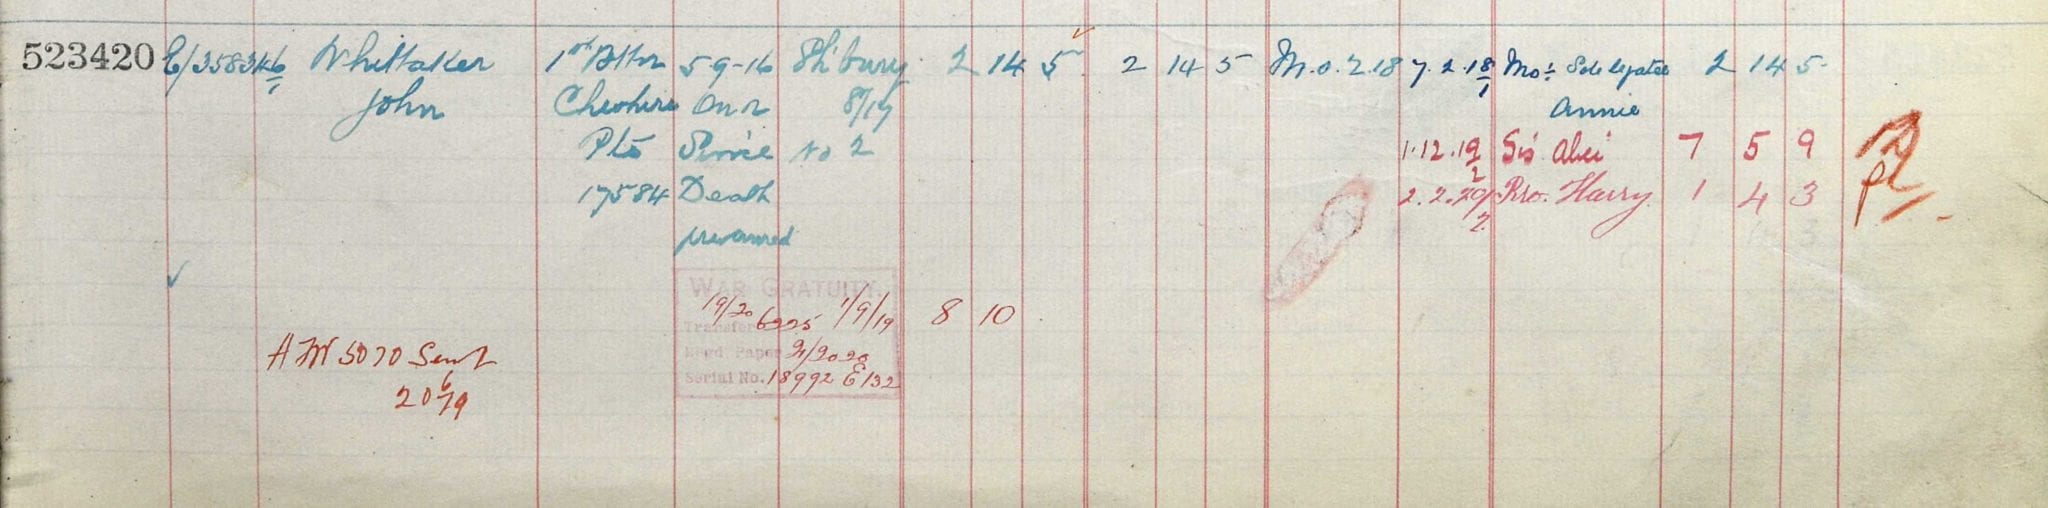 523420 E/358346/1 Whittaker 1st Battn 5-9-16 Sh'bury 2 14 5 2 14 5 M.O.2.18 7.2.18/1 Mo: Sole legatee 2 14 5
John Cheshire On or 8/17 Annie
Pte Since No 2 1.12.19/2 Sis Alice 7 5 9
17584 Death 2.2.20/2 Bro. Harry 1 4 3
presumed
WAR GRATUITY.
19/20 6225 1/9/19 8 10
Transfer
Regd. Paper 2/2020
Serial No. 18992 E132
5070 Sent
20/6/19